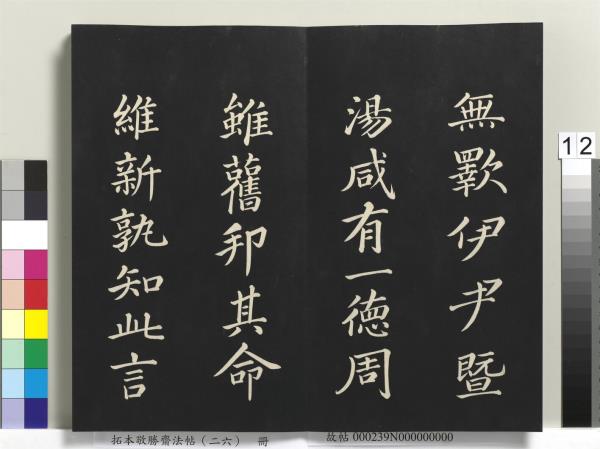 無斁伊尹暨
湯咸有一徳周
雖舊邦其命
維新孰知此言
12
拓本敬勝齋法帖（二六） 冊
故帖 000239N000000000